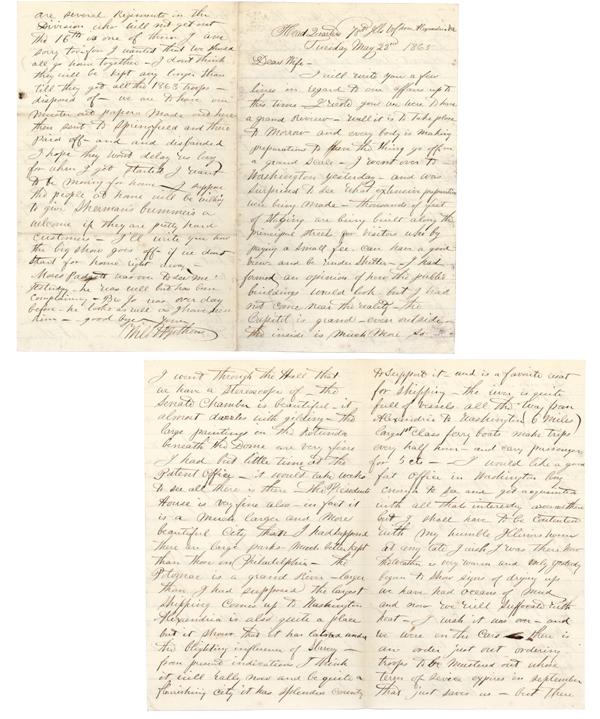 Head Quarters 10th Ills Vol Alexandria Va
Tuesday May 23rd 1865
Dear Wife -
I will write you a few
lines in regard to our affairs up to
this time - I wrote you we were to have
a grand Review - well it is to take place
to Morrow - and every body is making
preparations to have the thing go off on
a grand scale - I went over to
Washington yesterday - and was
surprised to see what extensive preparations
were being made - thousands of feet
of staging are being built along the
principal street for visitors who by
paying a small fee can have a good
view and be under shelter - I had
formed an opinion of how the public
buildings would look but I had
not come near the reality - the
Capitol is grand - even outside -
the inside is much more so -
I went through the Hall that
we have a stereoscope of - the
Senate Chamber is beautiful - it
almost dazzles with gilding - the
large paintings in the Rotunda
beneath the Dome are very fine
I had but little time at the
Patent Office - it would take weeks
to see all there is there - the Presidents
House is very fine also - in fact it
is a much larger and more
beautiful City than I had supposed
there are large parks much better kept
than those in Philadelphia - the
Potomac is a grand River - larger
than I had supposed the largest
shipping comes up to Washington
Alexandria is also quite a place
but it shows that it has labored under
the blighting influence of slavery -
from present indications I think
it will rally now and be quite a
flourishing city it has splendid country
to support it - and is a favorite coast
for shipping - the river is quite
full of vessels all the way from
Alexandria to Washington (6 miles)
large 1st class ferry boats make trips
every half hour - and carry passengers
for 5 cts - I would like a good
fat office in Washington long
enough to see and get acquainted
with all that interesting
but I shall have to be contented
with my humble Illinois home
at any rate I wish I was there now
the weather is very warm and only yesterday
began to show signs of drying up
we have had oceans of mud
and now we will suffocate with
heat - I wish it was over - and
we were on the Cars - there is
an order just out ordering
troops to be mustered out whose
term of service expires in september
that just saves us - but there
are several Regiments in the
Division who will not get out
the 16th is one of them I am
sorry too for I wanted that we should
all go home together - I dont think
they will be kept any longer than
till they get all the 1863 troops -
disposed of - we are to have our
muster out papers made out here
then sent to Springfield and there
paid off - and disbanded
I hope they wont delay us long
for when I get started I want
to be moving for home - I suppose
the people at home will be willing
to give Sherman's bummers a
welcome if they are pretty hard
customers - I'll write you how
the big show goes off if we dont
start for home right away
Moses was over to see me
yesterday - he was well but has been
complaining - Bro Jo was over day
before - he looks as well as I have seen
him - good bye - Yours
Will